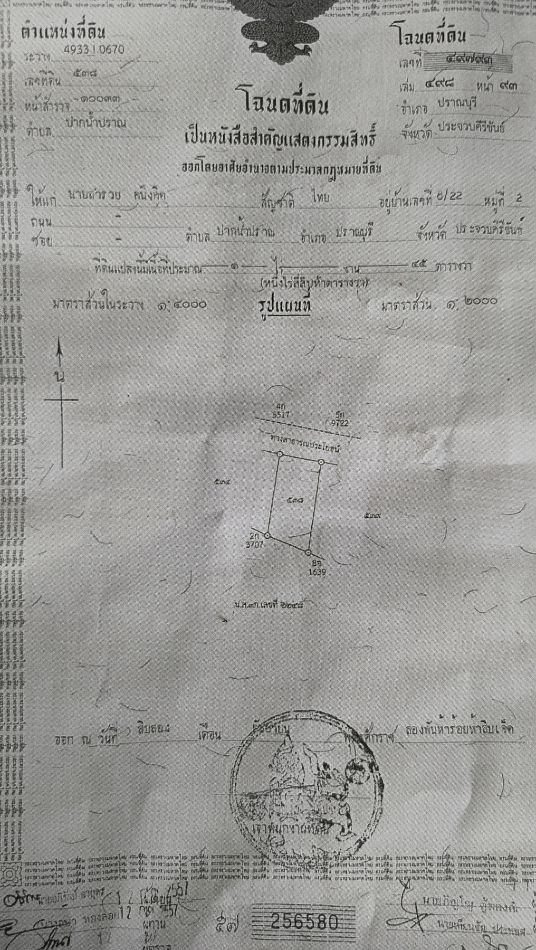 ตำแหน่งที่ดิน
ระวาง 4933 I 0670
เลขที่ดิน ๕๓๘
หน้าสำรวจ ๑๐๐๓๓
ตำบล ปากน้ำปราณ
โฉนดที่ดิน
เลขที่ ๔๙๗๙๓
เล่ม ๔๙๘ หน้า ๙๓
อำเภอ ปราณบุรี
จังหวัด ประจวบคีรีขันธ์
โฉนดที่ดิน
เป็นหนังสือสำคัญแสดงกรรมสิทธิ์
ออกโดยอาศัยอำนาจตามประมวลกฎหมายที่ดิน
ให้แก่ นายสำรวย คนึงคิด สัญชาติ ไทย อยู่บ้านเลขที่ /22 หมู่ที่ 2
ถนน -
ซอย - ตำบล ปากน้ำปราณ อำเภอ ปราณบุรี จังหวัด ประจวบคีรีขันธ์
ที่ดินแปลงนี้มีเนื้อที่ประมาณ ๑ ไร่ - งาน ๔๕ ตารางวา
(หนึ่งไร่สี่สิบห้าตารางวา)
มาตราส่วนในระวาง ๑:๔๐๐๐ รูปแผนที่ มาตราส่วน ๑:๒๐๐๐
น
4ก
8517
5ก
9722
ทางสาธารณประโยชน์
๕๓๔
๕๓๘
๕๓๙
2ก
3707
8จ
1639
น.ส.๓ก.เลขที่ ๒๒๔๘
ออก ณ วันที่ สิบสอง เดือน กันยายน พุทธศักราช สองพันห้าร้อยห้าสิบเจ็ด
เจ้าพนักงานที่ดิน
๕๗
256580